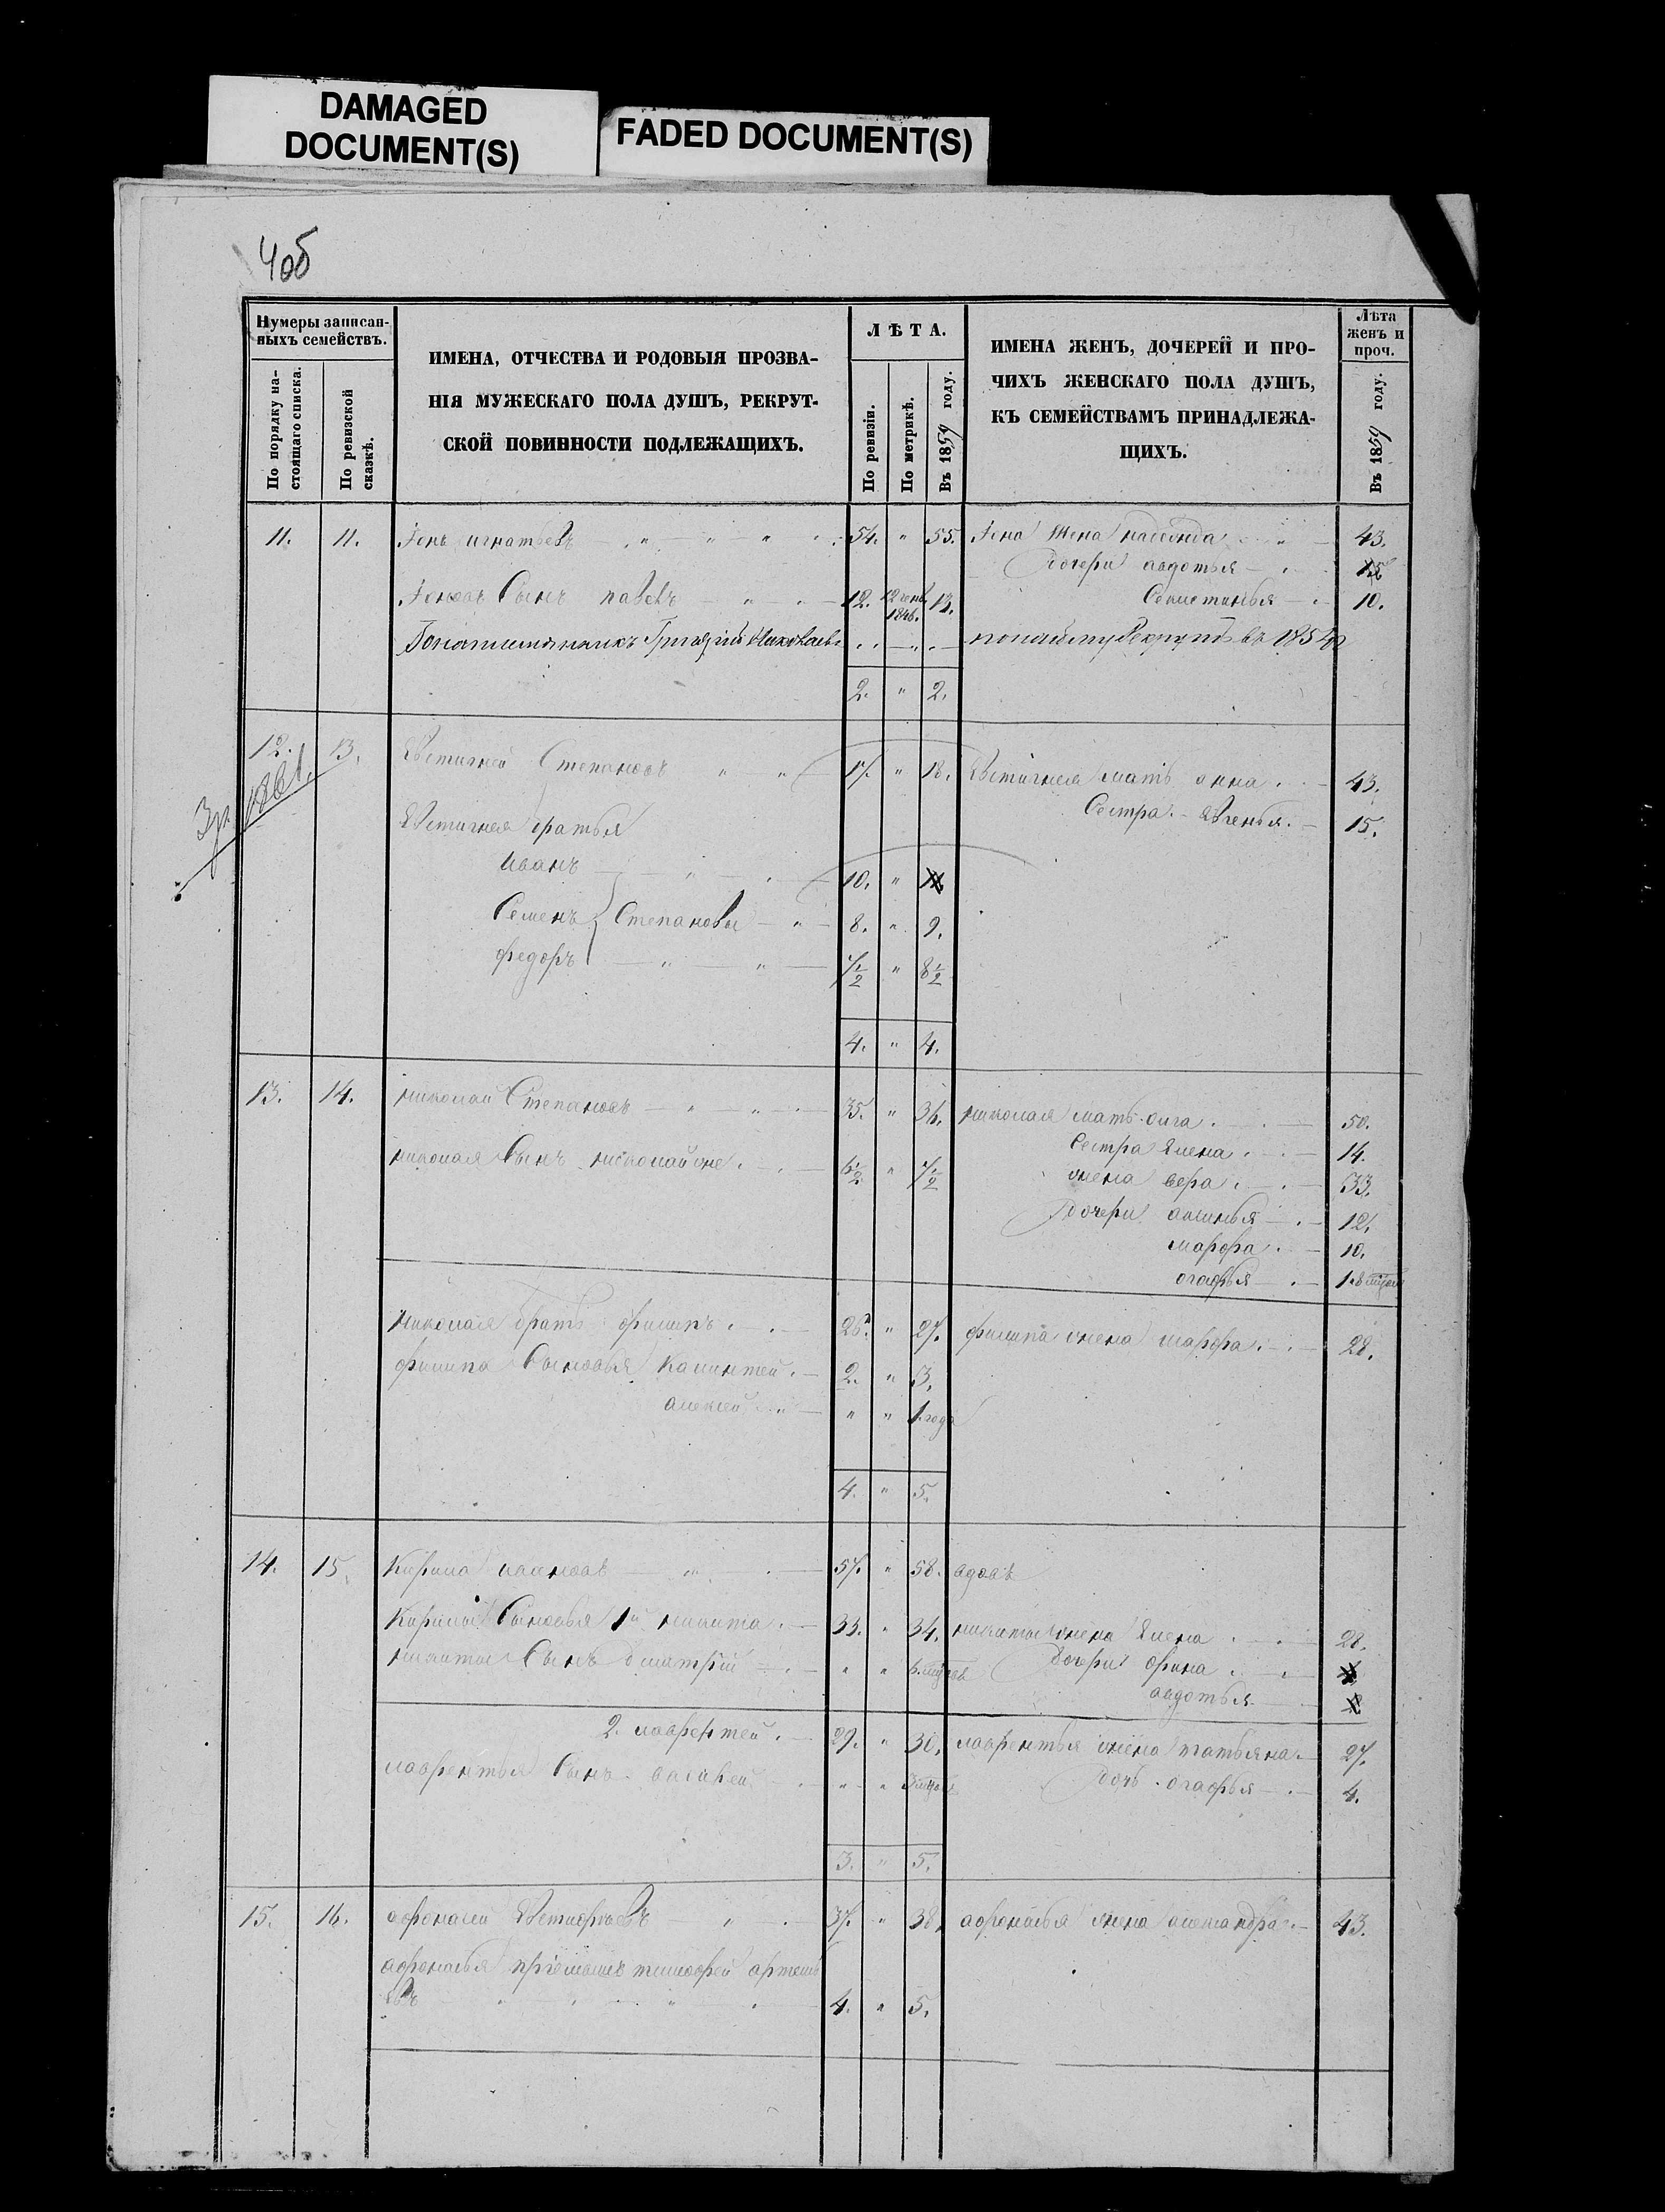 DAMAGED
DOCUMENT(S)
FADED DOCUMENT(S)
4об
Нумеры записан-
ныхъ семействъ.
По порядку на-
стоящаго списка.
По ревизской
сказкѣ.
ИМЕНА, ОТЧЕСТВА И РОДОВЫЯ ПРОЗВА-
НІЯ МУЖЕСКАГО ПОЛА ДУШЪ, РЕКРУТ-
СКОЙ ПОВИННОСТИ ПОДЛЕЖАЩИХЪ.
ЛѢТА.
По ревизіи.
По метрикѣ.
Въ 1859 году.
ИМЕНА ЖЕНЪ, ДОЧЕРЕЙ И ПРО-
ЧИХЪ ЖЕНСКАГО ПОЛА ДУШЪ,
КЪ СЕМЕЙСТВАМЪ ПРИНАДЛЕЖА-
ЩИХЪ.
Лѣта
женъ и
проч.
Въ 1859 году.
11. 11. игнатьевъ 54. " 55. жена 43.
Дочери авдотья
Сынъ павелъ 12. 1846. 13. 10.
Григорій Николаевъ рекрутъ въ
2. " 2.
12. 13. Евстигней Степановъ 17. " 18. Евстигнея мать анна 43.
Сестра Евгенья 15.
1861.
Евстигнея братья
иванъ 10. "
Семенъ Степановы 8. " 9.
федоръ 7½ " 8½
4. " 4.
13. 14. николай Степановъ 35. " 36. николая мать олга 50.
Сестра Елена 14.
николая Сынъ николай же 6½ " 7½ жена вера 33.
Дочери аксинья 12.
марфа 10.
огафья
николая братъ филипъ 26. " 27. филипа жена марфа 28.
филипа Сыновья калинтей 2. " 3.
алексей " " 1 года
4. " 5.
14. 15. Кирила ивановъ 57. " 58. вдовъ
Кирилы Сыновья 1й никита 33. " 34. никиты жена Елена 28.
никиты Сынъ дмитрій " " Дочери орина
авдотья
2. лаврентей 29. " 30. лаврентья жена татьяна 27.
лаврентья Сынъ " " дочь огафья 4.
3. " 5.
15. 16. афонасей Евстифѣевъ 37. " 38. афонасья жена александра 43.
афонасья пріемышъ тимофей артемь
евъ 4. " 5.